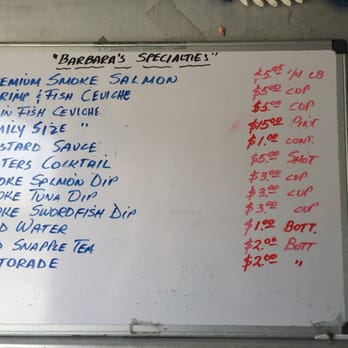 "BARBARA'S SPECIALTIES"
REMIUM SMOKE SALMON $5.95 1/4 LB
RIMP & FISH CEVICHE $5.00 CUP
IN FISH CEVICHE $5.00 CUP
MILY SIZE " $15.00 PINT
STARD SAUCE $1.00 CONT.
STERS COCKTAIL $5.00 SHOT
OKE SALMON DIP $3.00 CUP
OKE TUNA DIP $3.00 CUP
OKE SWORDFISH DIP $3.00 CUP
D WATER $1.00 BOTT.
D SNAPPLE TEA $2.00 BOTT
TORADE $2.00 "